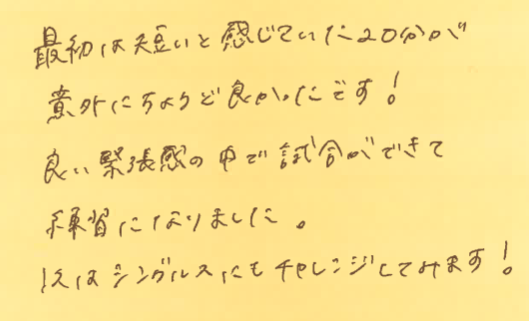 最初は短いと感じていた20分が
意外にちょうど良かったです!
良い緊張感の中で試合ができて
練習になりました。
次はシングルスにもチャレンジしてみます!